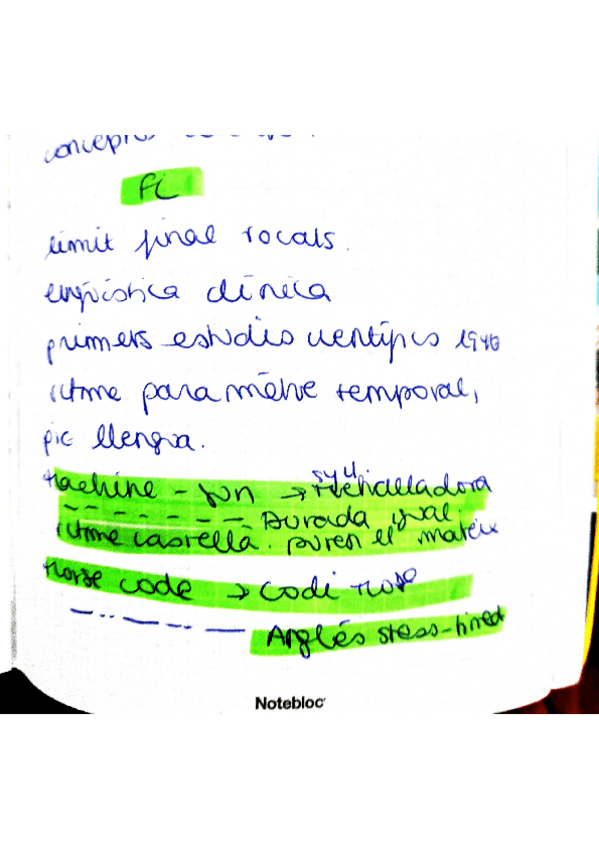 conceptes
FC
límit final vocals.
lingüística clínica
primers estudis científics 1940
ritme paràmetre temporal,
pic llengua.
syll.
Machine - gun → metralladora
Durada igual.
ritme castellà. duren el mateix
Morse code → Codi Morse
Anglés stress-timed
Notebloc